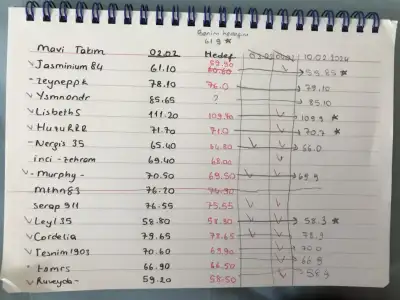 Benim hedefim
61.9 *
Mavi Takım 02.02 Hedef 10.02.2024
Jasminium 84 61.10 59.90 60.60 59.85 *
- zeynepptt 78.10 76.0 79.10
Ysmnondr 85.65 ? 85.10
LisbethS 111.20 109.90 109.9 *
HusuRRR 71.70 71.0 70.7 *
- Nergis 35 65.40 64.80 66.0
inci-zehram 69.40 68.00
- murphy - 70.50 69.50 69.9
mthn83 76.20 74.90
serap 911 76.55 75.55
Leyl 35 58.80 58.80 58.3 *
Cordelia 79.65 78.65 78.9
Tesnim1903 70.60 69.90 70.0
- tamrs 66.90 66.50 66.9
Ruveyda - 59.20 58.50 58.9